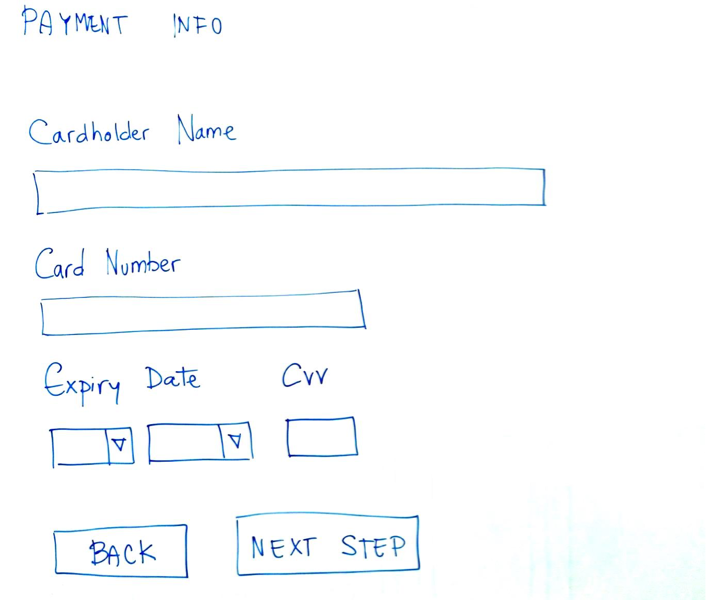 PAYMENT INFO
Cardholder Name
Card Number
Expiry Date CVV
BACK NEXT STEP